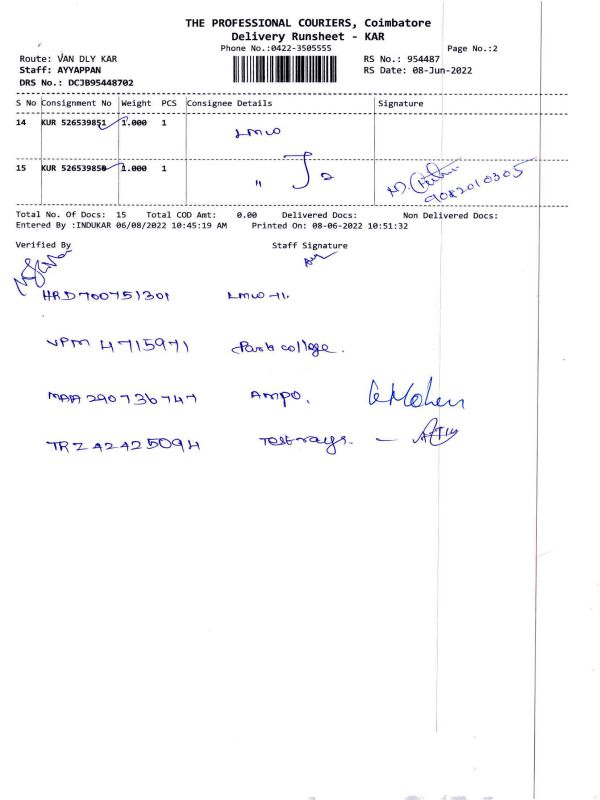 THE PROFESSIONAL COURIERS, Coimbatore
Delivery Runsheet - KAR
Phone No.:0422-3505555 Page No.:2
Route: VAN DLY KAR RS No.: 954487
Staff: AYYAPPAN RS Date: 08-Jun-2022
DRS No.: DCJB95448702
S No Consignment No Weight PCS Consignee Details Signature
14 KUR 526539851 1.000 1 LMW
15 KUR 526539850 1.000 1 " 2
9082010305
Total No. Of Docs: 15 Total COD Amt: 0.00 Delivered Docs: Non Delivered Docs:
Entered By :INDUKAR 06/08/2022 10:45:19 AM Printed On: 08-06-2022 10:51:32
Verified By Staff Signature
HRD700751301 LMW-11.
VPM 4715971 Park college.
MAA 290736747 AMPO. Mohan
TRZ 42425094 Testrays. -